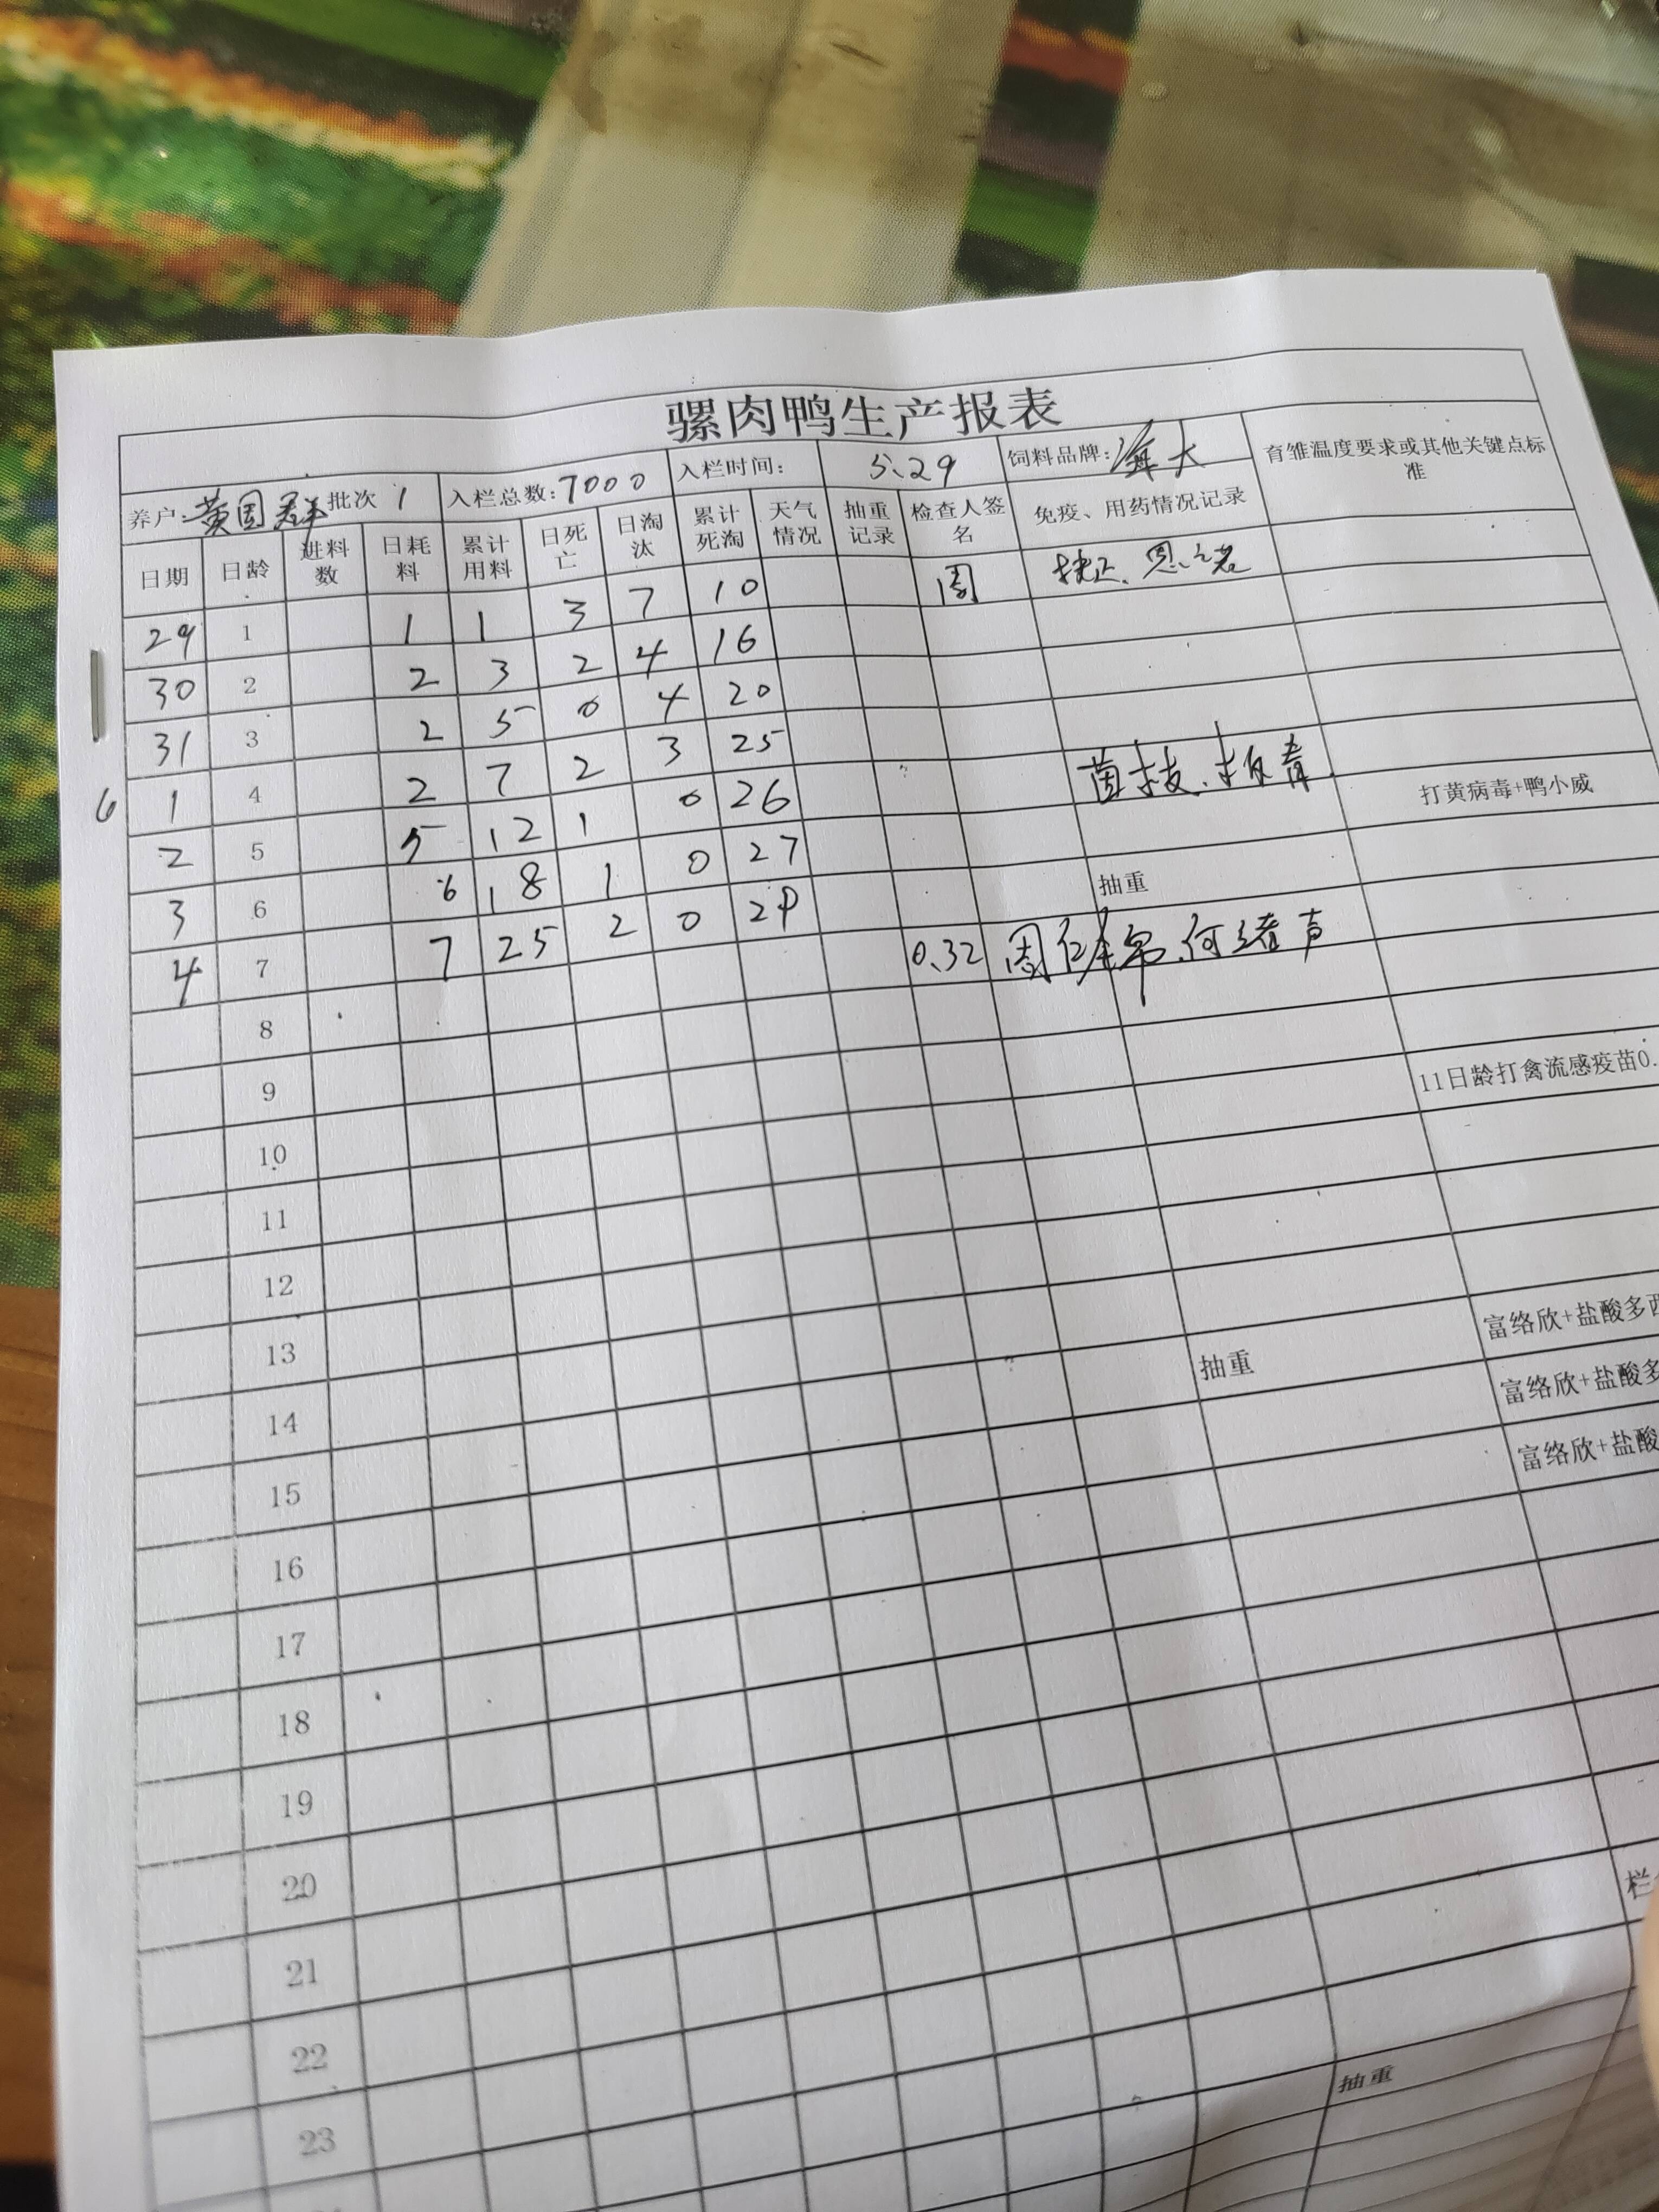 骡肉鸭生产报表
养户:黄国群 批次 1 入栏总数:7000 入栏时间: 5.29 饲料品牌:海大 育雏温度要求或其他关键点标准
日期 日龄 进料数 日耗料 累计用料 日死亡 日淘汰 累计死淘 天气情况 抽重记录 检查人签名 免疫、用药情况记录
29 1 1 1 3 7 10 周
30 2 2 3 2 4 16
31 3 2 5 0 4 20
6 1 4 2 7 2 3 25
2 5 5 12 1 0 26 打黄病毒+鸭小威
3 6 6 18 1 0 27
4 7 7 25 2 0 29 0.32 抽重
8
9
10 11日龄打禽流感疫苗0.
11
12
13
14 抽重 富络欣+盐酸多西
15 富络欣+盐酸多
16 富络欣+盐酸
17
18
19
20
21
22 栏
23
抽重